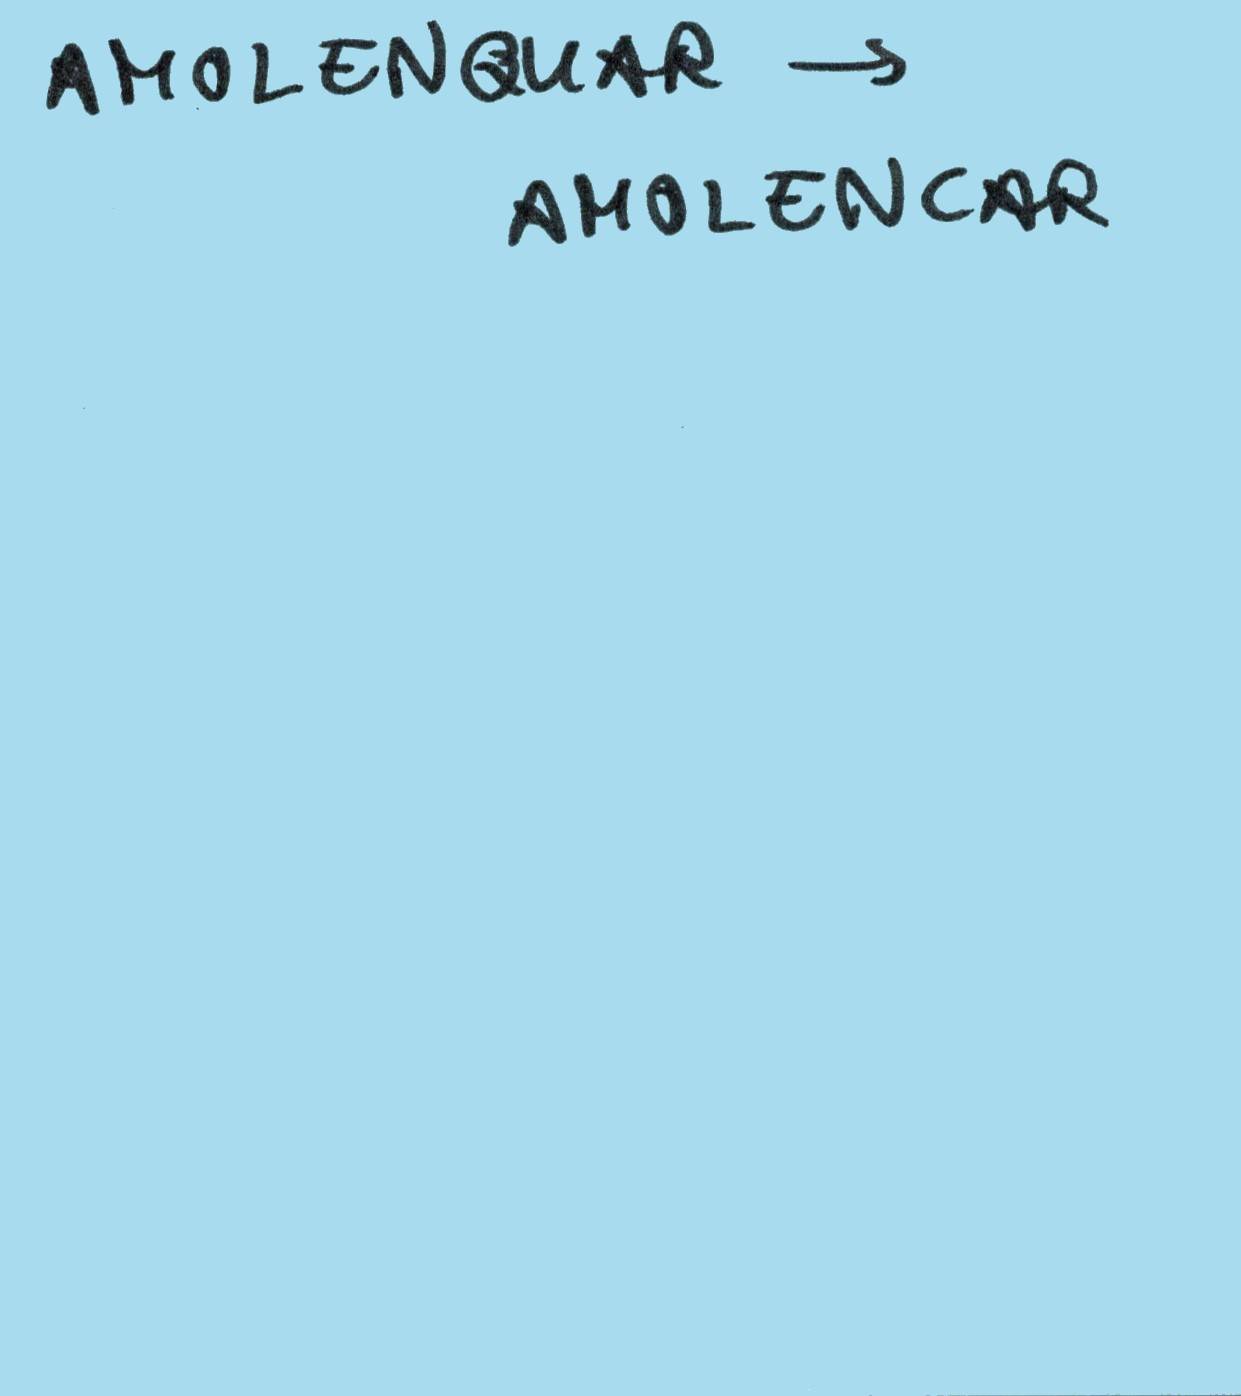 AMOLENQUAR →
AMOLENCAR